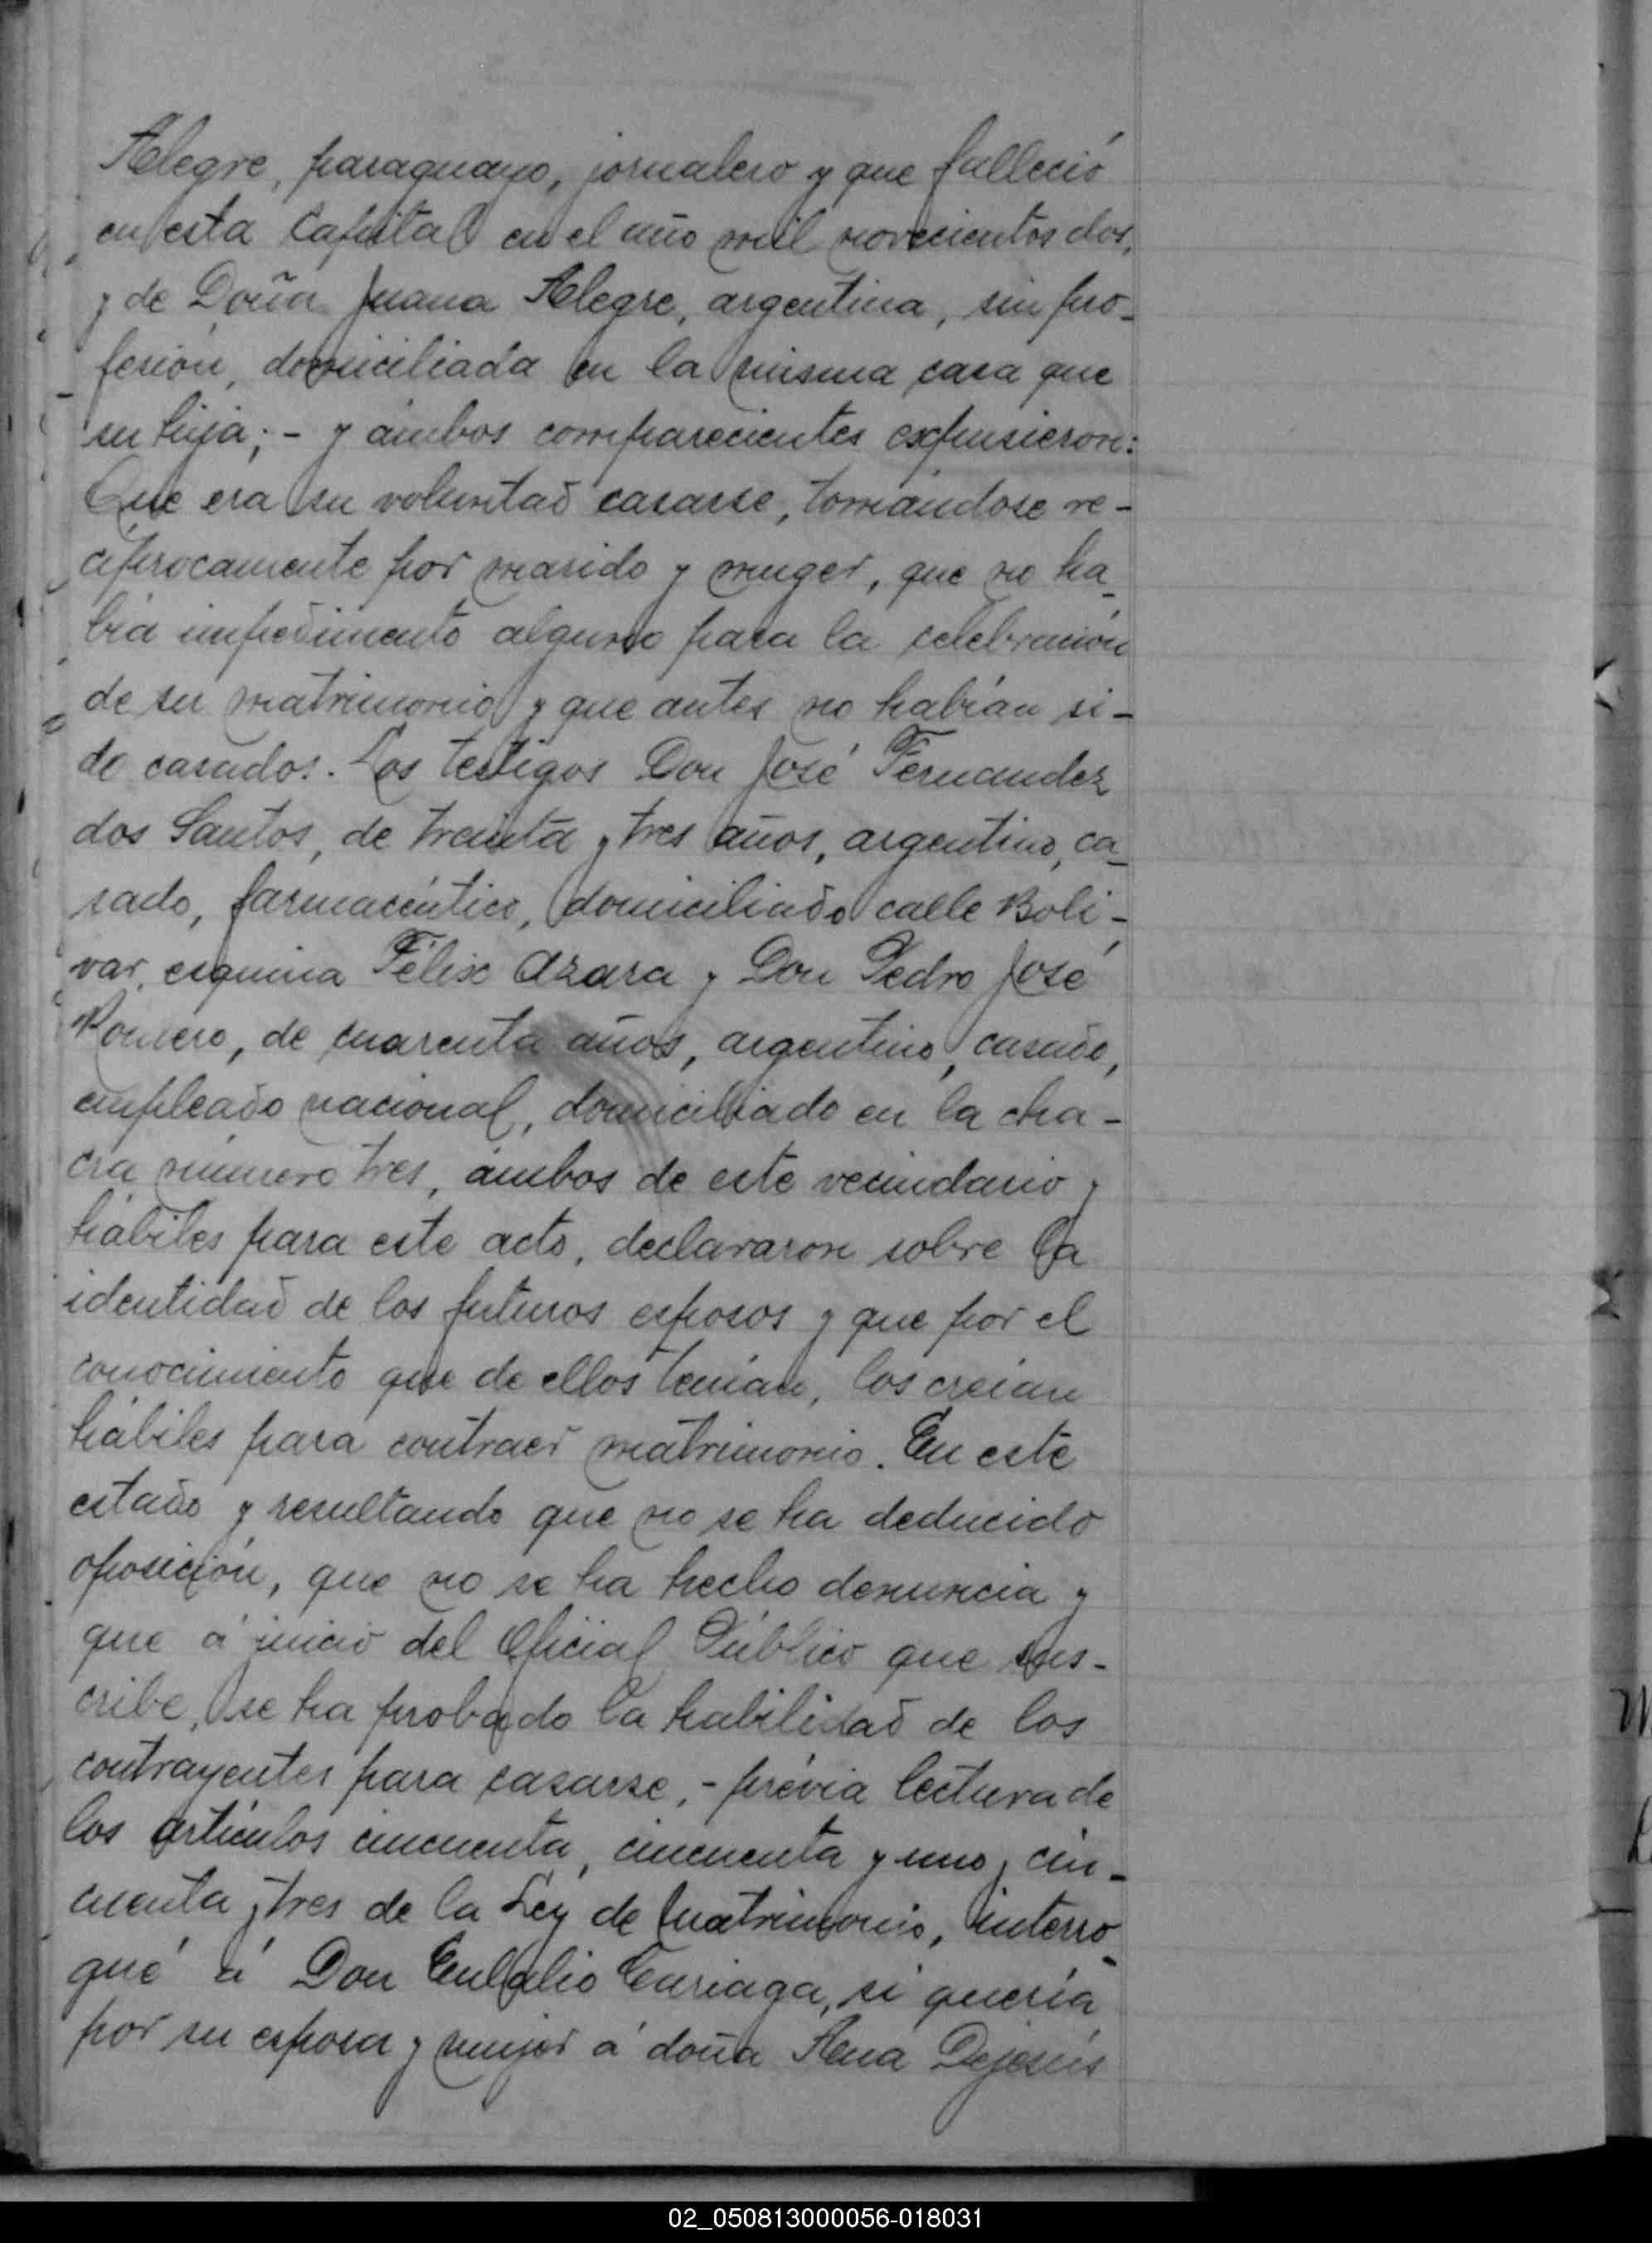 Alegre, paraguayo, jornalero y que falleció
en esta Capital en el año mil novecientos dos,
y de Doña Juana Alegre, argentina, sin pro-
fesión, domiciliada en la misma casa que
su hija; - y ámbos comparecientes expusieron:
Que era su voluntad casarse, tomándose re-
ciprocamente por marido y muger, que no ha-
bía impedimento alguno para la celebración
de su matrimonio y que antes no habían si-
do casados. Los testigos Don José Fernandez
dos Santos, de treinta y tres años, argentino, ca-
sado, farmacéutico, domiciliado calle Boli-
var, esquina Félix Azara y Don Pedro José
Romero, de cuarenta años, argentino, casado,
empleado nacional, domiciliado en la cha-
cra número tres, ámbos de este vecindario y
hábiles para este acto, declararon sobre la
identidad de los futuros esposos y que por el
conocimiento que de ellos tenían, los creían
hábiles para contraer matrimonio. En este
estado y resultando que no se ha deducido
oposición, que no se ha hecho denuncia y
que á juicio del Oficial Público que sus-
cribe, se ha probado la habilidad de los
contrayentes para casarse, - prévia lectura de
los artículos cincuenta, cincuenta y uno y cin-
cuenta y tres de la Ley de Matrimonio, interro-
gué á Don Eulalio Euriaga, si quería
por su esposa y mujer á doña Ana Dejesús
02_050813000056-018031